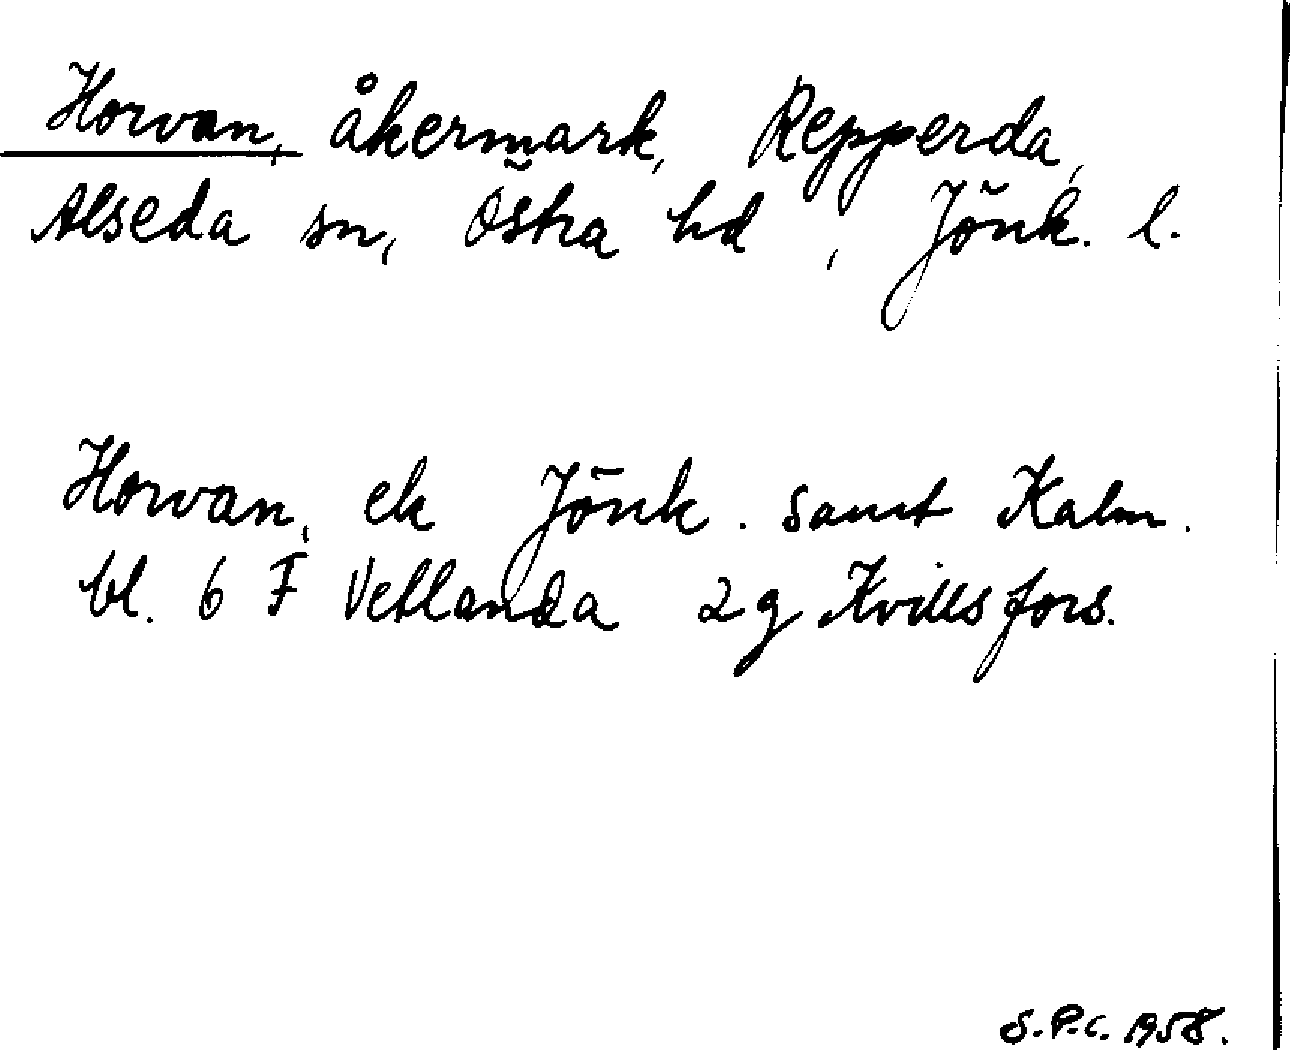 Horvan, åkermark, Repperda,
Alseda sn, Östra hd, Jönk. l.
Horvan, ek Jönk. samt Kalm.
bl. 6 F Vetlanda 2g Kvillsfors.
S.P.C. 1958.